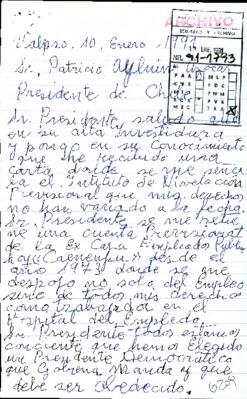 ARCHIVO
Valpso. 10. Enero 1991
NR. 91-1793
Sr. Patricio Aylwin
Presidente de Chile
Sr. Presidente saludo a Ud
en su alta Investidura
y pongo en su conocimiento
que he recibido una
carta donde se me
el Instituto de Nivelacion
Previsional que mis derechos
no han variado a la fecha
Sr. Presidente se me
me una cuenta Previsional
de la Ex Caja Empleados Publi
hoy «Caenempu» desde el
año 1973 donde se me
despojo no solo del empleo
sino de todos mis derechos
como trabajador en el
Hospital del Empleado.
Sr. Presidente todos estamos
conciente que hemos elegido
un Presidente Democratico
que Gobierna Manda y que
debe ser Obedecido.